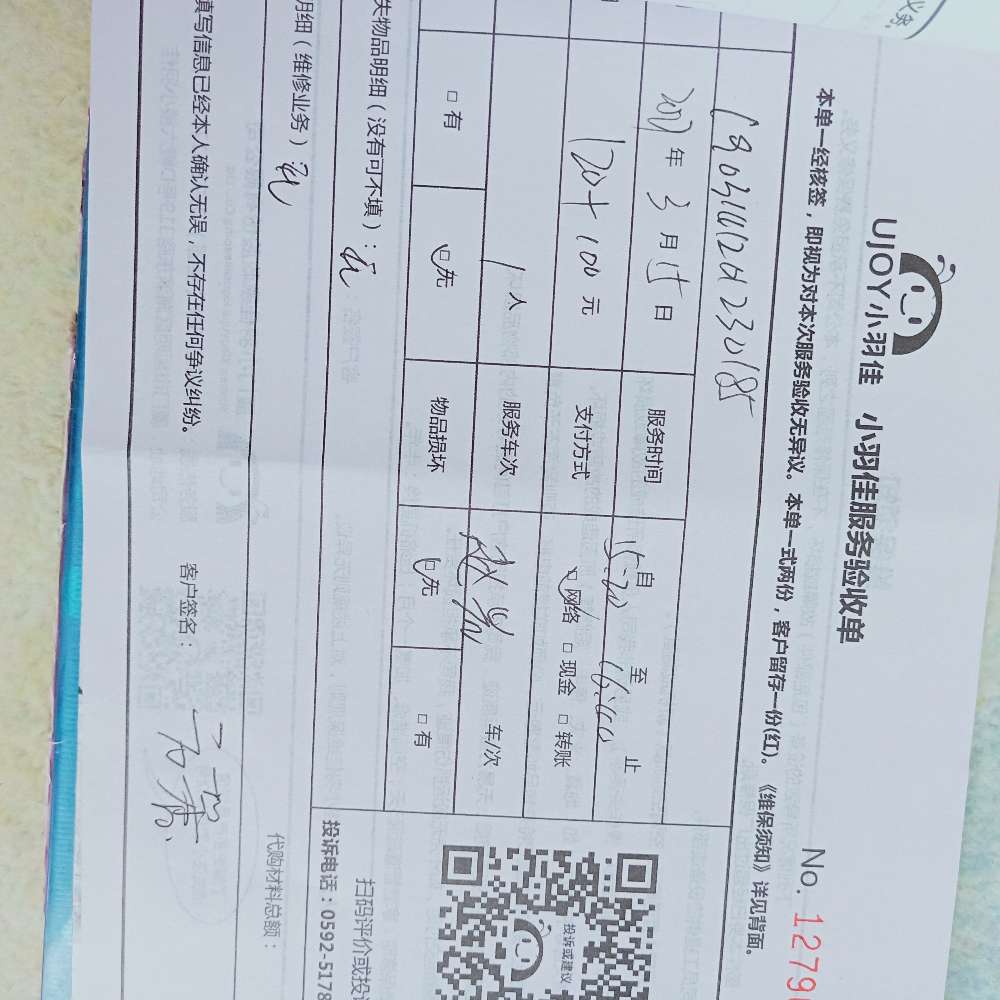 UJOY小羽佳
小羽佳服务验收单
No. 1279
本单一经核签，即视为对本次服务验收无异议。本单一式两份，客户留存一份(红)。《维保须知》详见背面。
年 3 月 15 日 服务时间 自 15:20 至 16:00 止
120+100 元 支付方式 网络 □ 现金 □ 转账
1 人 服务车次 车/次
□ 有 无 物品损坏 无 □ 有
失物品明细（没有可不填）：无
明细（维修业务） 无
扫码评价或投
投诉电话：0592-5178
投诉或建议
代购材料总额：
填写信息已经本人确认无误，不存在任何争议纠纷。 客户签名：